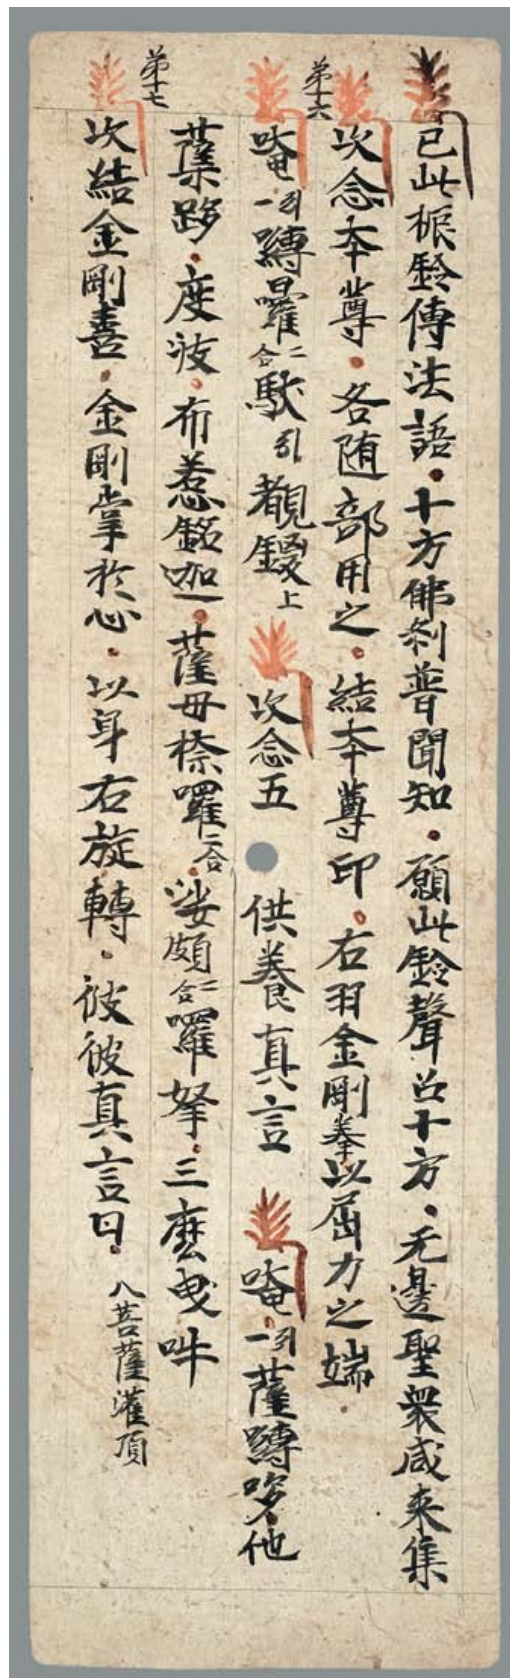 已此振鈴傳法語．十方佛剎普聞知．願此鈴聲召十方．无邊聖衆咸来集
次念本尊．各随部用之．結本尊印．右羽金剛拳以屈力之端．
第十六
唵一引 𭌆曩二合 馱引 覩鑁上 次念五 供養真言 唵一引 薩嚩哆他
蘗路．度波．布惹銘伽．薩母捺囉二合．娑頗二合囉拏．三麼曳吽
第十七
次結金剛喜．金剛掌於心．以身右旋轉．彼彼真言曰．八菩薩灌頂